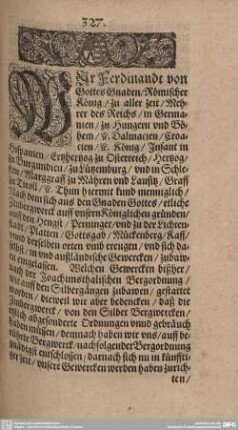 327.
WIr Ferdinandt von
Gottes Gnaden / Römischer
König / zu aller zeit / Meh-
rer des Reichs / in Germa-
nien / zu Hungern und Bö-
hem / ꝛc. Dalmacien / Croa-
cien / ꝛc. König / Infant in
Hispanien / Ertzhertzog zu Osterreich / Hertzog
zu Burgundien / zu Lützemburg / und in Schle-
sien / Marggraff zu Mähren und Laußitz / Graff
in Tiroll / ꝛc. Thun hiermit kund menniglich /
Nach dem sich aus den Gnaden Gottes / etliche
Zinbergwerck auf unsern Königlichen gründen /
auf den Hengst / Perninger / und zu der Lichten-
stadt / Platten / Gottsgab / Mückenberg / Kaff /
und derselben orten umb ereugen / und sich da-
selbst / in und außländische Gewercken / zubaw-
en einlassen. Welchen Gewercken bißher /
nach der Joachimsthalischen Bergordnung /
wie auff den Silbergängen zubawen / gestattet
worden / dieweil wir aber bedencken / daß die
Zinbergwerck / von den Silber Bergwercken /
billich abgesonderte Ordnungen unnd gebräuch
haben müssen / demnach haben wir uns / auff be-
rürrte Bergwerck / nachfolgender Bergordnung
gnädigst entschlossen / darnach sich nu in künffti-
ger zeit / unsere Gewercken werden haben zurich-
ten /